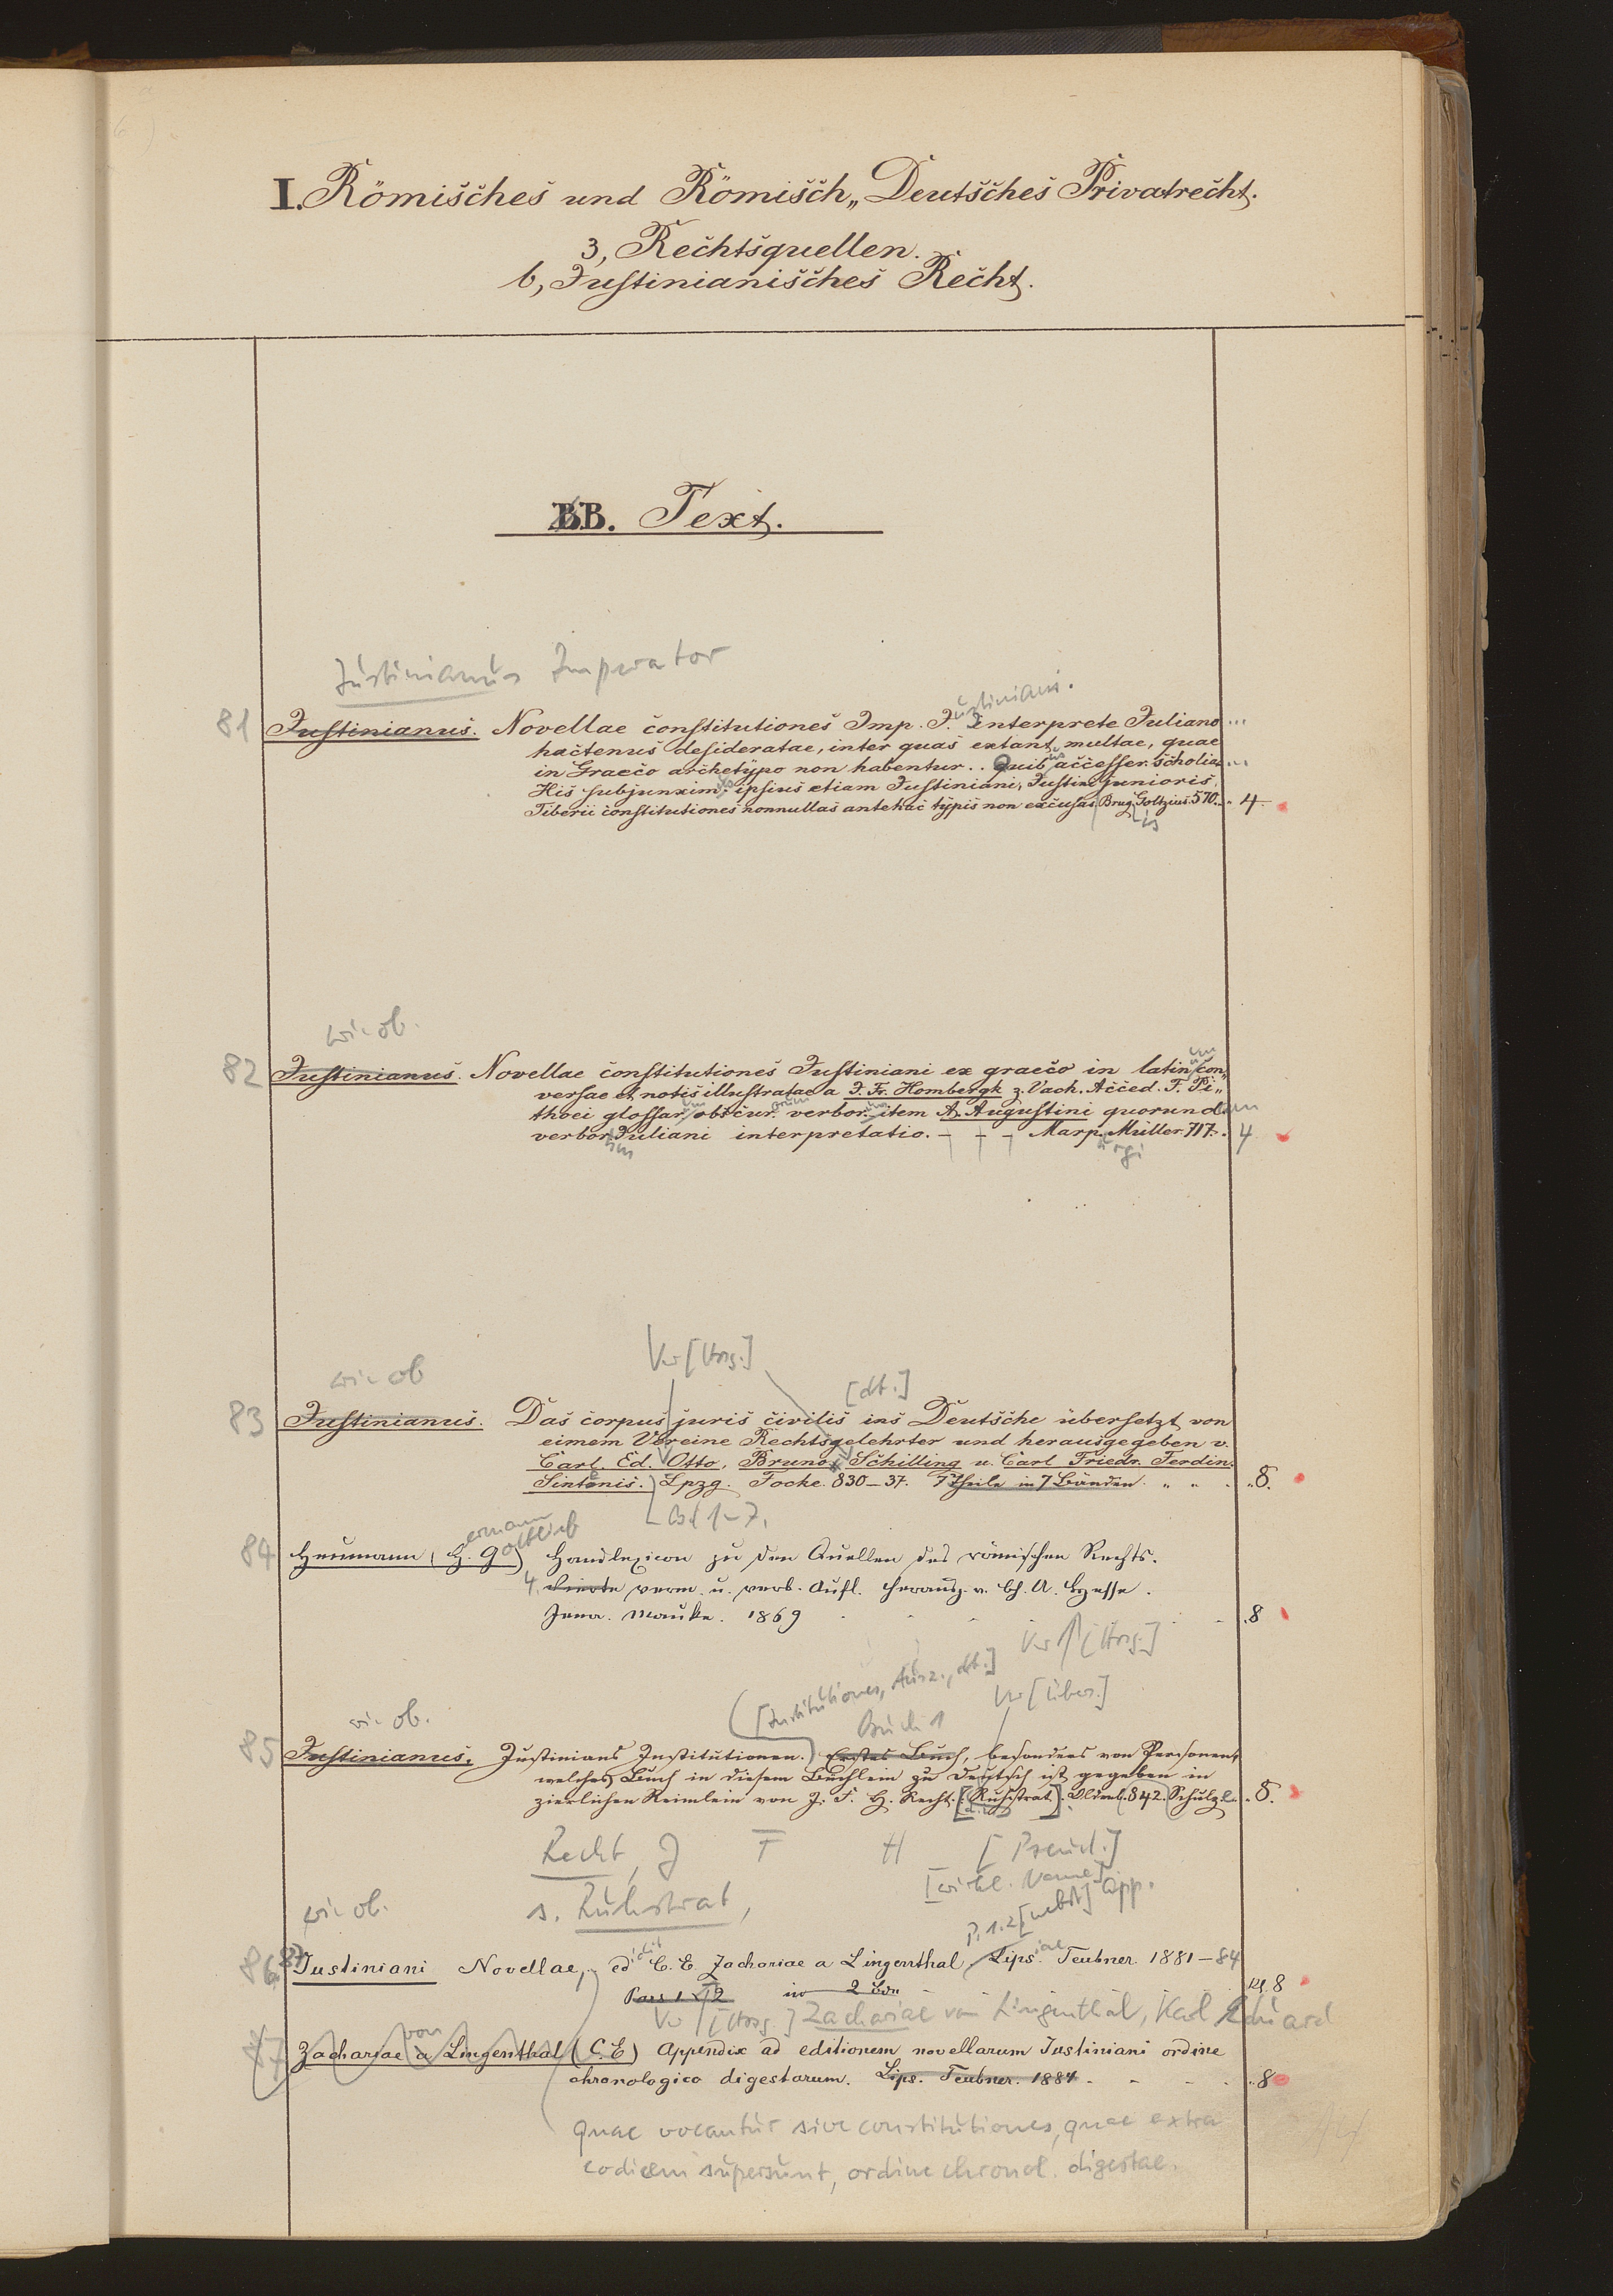 I. Römisches und Römisch„Deutsches Privatrecht.
3, Rechtsquellen.
b, Justinianisches Recht.
BB. Text.
Justinianus Imperator
ustiniani.
81 Justinianus. Novellae constitutiones Imp. J. Interprete Juliano ...
hactenus desideratae, inter quas extant multae, quae
in Graeco archetypo non habentur.. Quibus accesser. scholia ...
His subjunxim. ipsius etiam Justiniani, Justini junioris,
Tiberii constitutiones nonnullas antehac typis non excusas Brug. Goltzius. 570. 4.
is
wie ob.
82 Justinianus. Novellae constitutiones Justiniani ex graeco in latinum con„
versae et notis illustratae a J. Fr. Hombergk z. Vach. Acced. F. Pi„
thoei glossar. obscur. verbor. item A. Augustini quorundam
verbor. Juliani interpretatio. - - - Marp. Müller. 717. 4
um urgi
Vw [Hrsg.]
wie ob [dt.]
83 Justinianus. Das corpus juris civilis ins Deutsche übersetzt von
einem Vereine Rechtsgelehrter und herausgegeben v.
Carl. Ed. Otto, Bruno Schilling u. Carl Friedr. Ferdin.
Sintenis. Lpzg. Focke. 830–37. 7 Theile in 7 Bänden. " " . 8.
Bd 1–7.
ermann ottlieb
84 Heumann (H. G.) Handlexicon zu den Quellen des römischen Rechts.
4. Vierte verm. u. verb. Aufl. herausg. v. Ch. A. Hesse.
Jena. Mauke. 1869 . 8
Vw [Hrsg.]
[Institutiones, Ausz., dt.] Vw [Übers.]
wie ob. Buch 1
85 Justinianus. Justinians Institutionen. Erstes Buch, besonders von Personen,
welches Buch in diesem Büchlein zu Deutsch ist gegeben in
zierlichen Reimlein von J. F. H. Recht. [Ruhstrat]. Oldenb. 842. Schulze. 8.
Recht, J F H [Pseud.]
[wirkl. Name]
wie ob. s. Ruhstrat,
P. 1.2 [nebst] App.
86. 87 Justiniani Novellae, edidit C. E. Zachariae a Lingenthal, Lipsiae Teubner. 1881–84
Pars 1 & 2 in 2 Bdn kl. 8
Vw [Hrsg.] Zachariae von Lingenthal, Karl Eduard
87 Zachariae a von Lingenthal (C. E.) Appendix ad editionem novellarum Justiniani ordine
chronologico digestarum. Lips. Teubner. 1884 - - - 8
quae vocantur sive constitutiones, quae extra
codicem supersunt, ordine chronol. digestae.